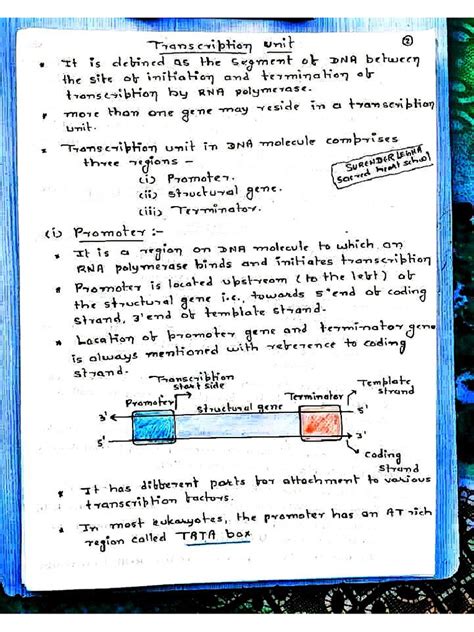 Transcription unit
②
* It is defined as the segment of DNA between
the site of initiation and termination of
transcription by RNA polymerase.
* more than one gene may reside in a transcription
unit.
* Transcription unit in DNA molecule comprises
three regions -
(i) Promoter.
(ii) structural gene.
(iii) Terminator.
SURENDER LEGHA
Sacred Heart School
(i) Promoter :-
* It is a region on DNA molecule to which an
RNA polymerase binds and initiates transcription
* Promoter is located upstream (to the left) of
the structural gene i.e., towards 5' end of coding
strand, 3' end of template strand.
* Location of promoter gene and terminator gene
is always mentioned with reference to coding
strand.
Transcription
start side
Template
strand
Promoter
structural gene
Terminator
3'
5'
5'
3'
Coding
strand
* It has different parts for attachment to various
transcription factors.
* In most eukaryotes, the promoter has an AT rich
region called TATA box